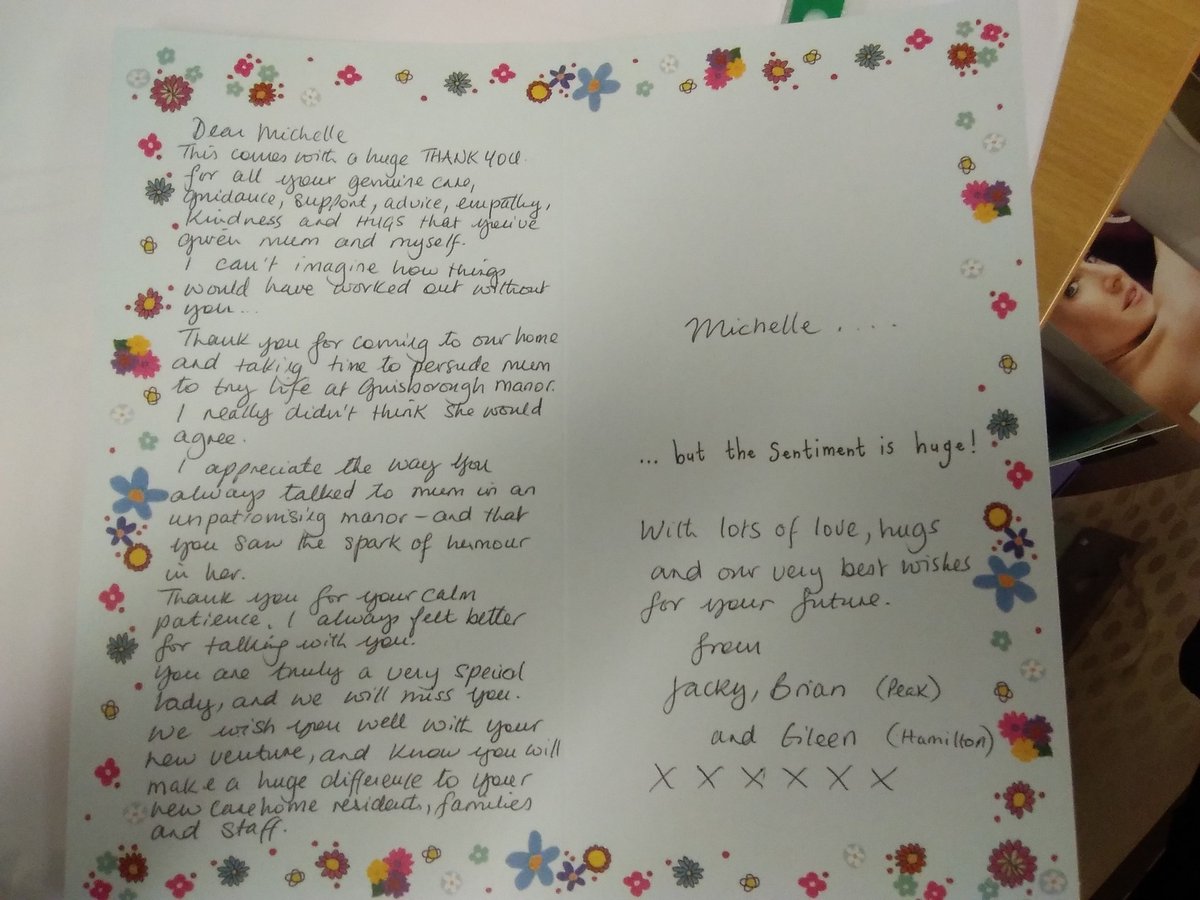 Dear Michelle
This comes with a huge THANK YOU
for all your genuine care,
guidance, support, advice, empathy,
kindness and HUGS that you've
given mum and myself.
I can't imagine how things
would have worked out without
you...
Thank you for coming to our home
and taking time to persude mum
to try life at Guisborough manor.
I really didn't think she would
agree.
I appreciate the way you
always talked to mum in an
unpatronising manor - and that
you saw the spark of humour
in her.
Thank you for your calm
patience. I always felt better
for talking with you.
You are truly a very special
lady, and we will miss you.
We wish you well with your
new venture, and know you will
make a huge difference to your
new carehome resident, families
and staff.
Michelle ....
... but the Sentiment is huge!
With lots of love, hugs
and our very best wishes
for your future.
from
Jacky, Brian (Peak)
and Eileen (Hamilton)
X X X X X X